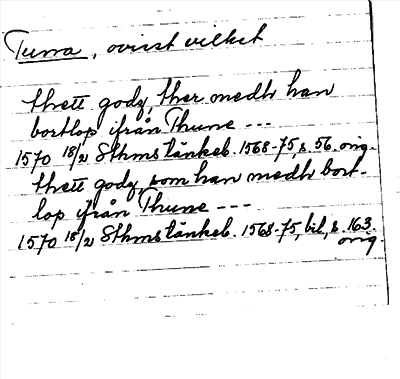 Tuna, ovisst vilket
thett godz, ther medh han
bortlop ifrån Thune ---
1570 18/2 Sthms tänkeb. 1568-75, s. 56. orig.
thett godz, som han medh bort-
lop ifrån Thune ---
1570 18/2 Sthms tänkeb. 1568-75, bil., s. 163.
orig.